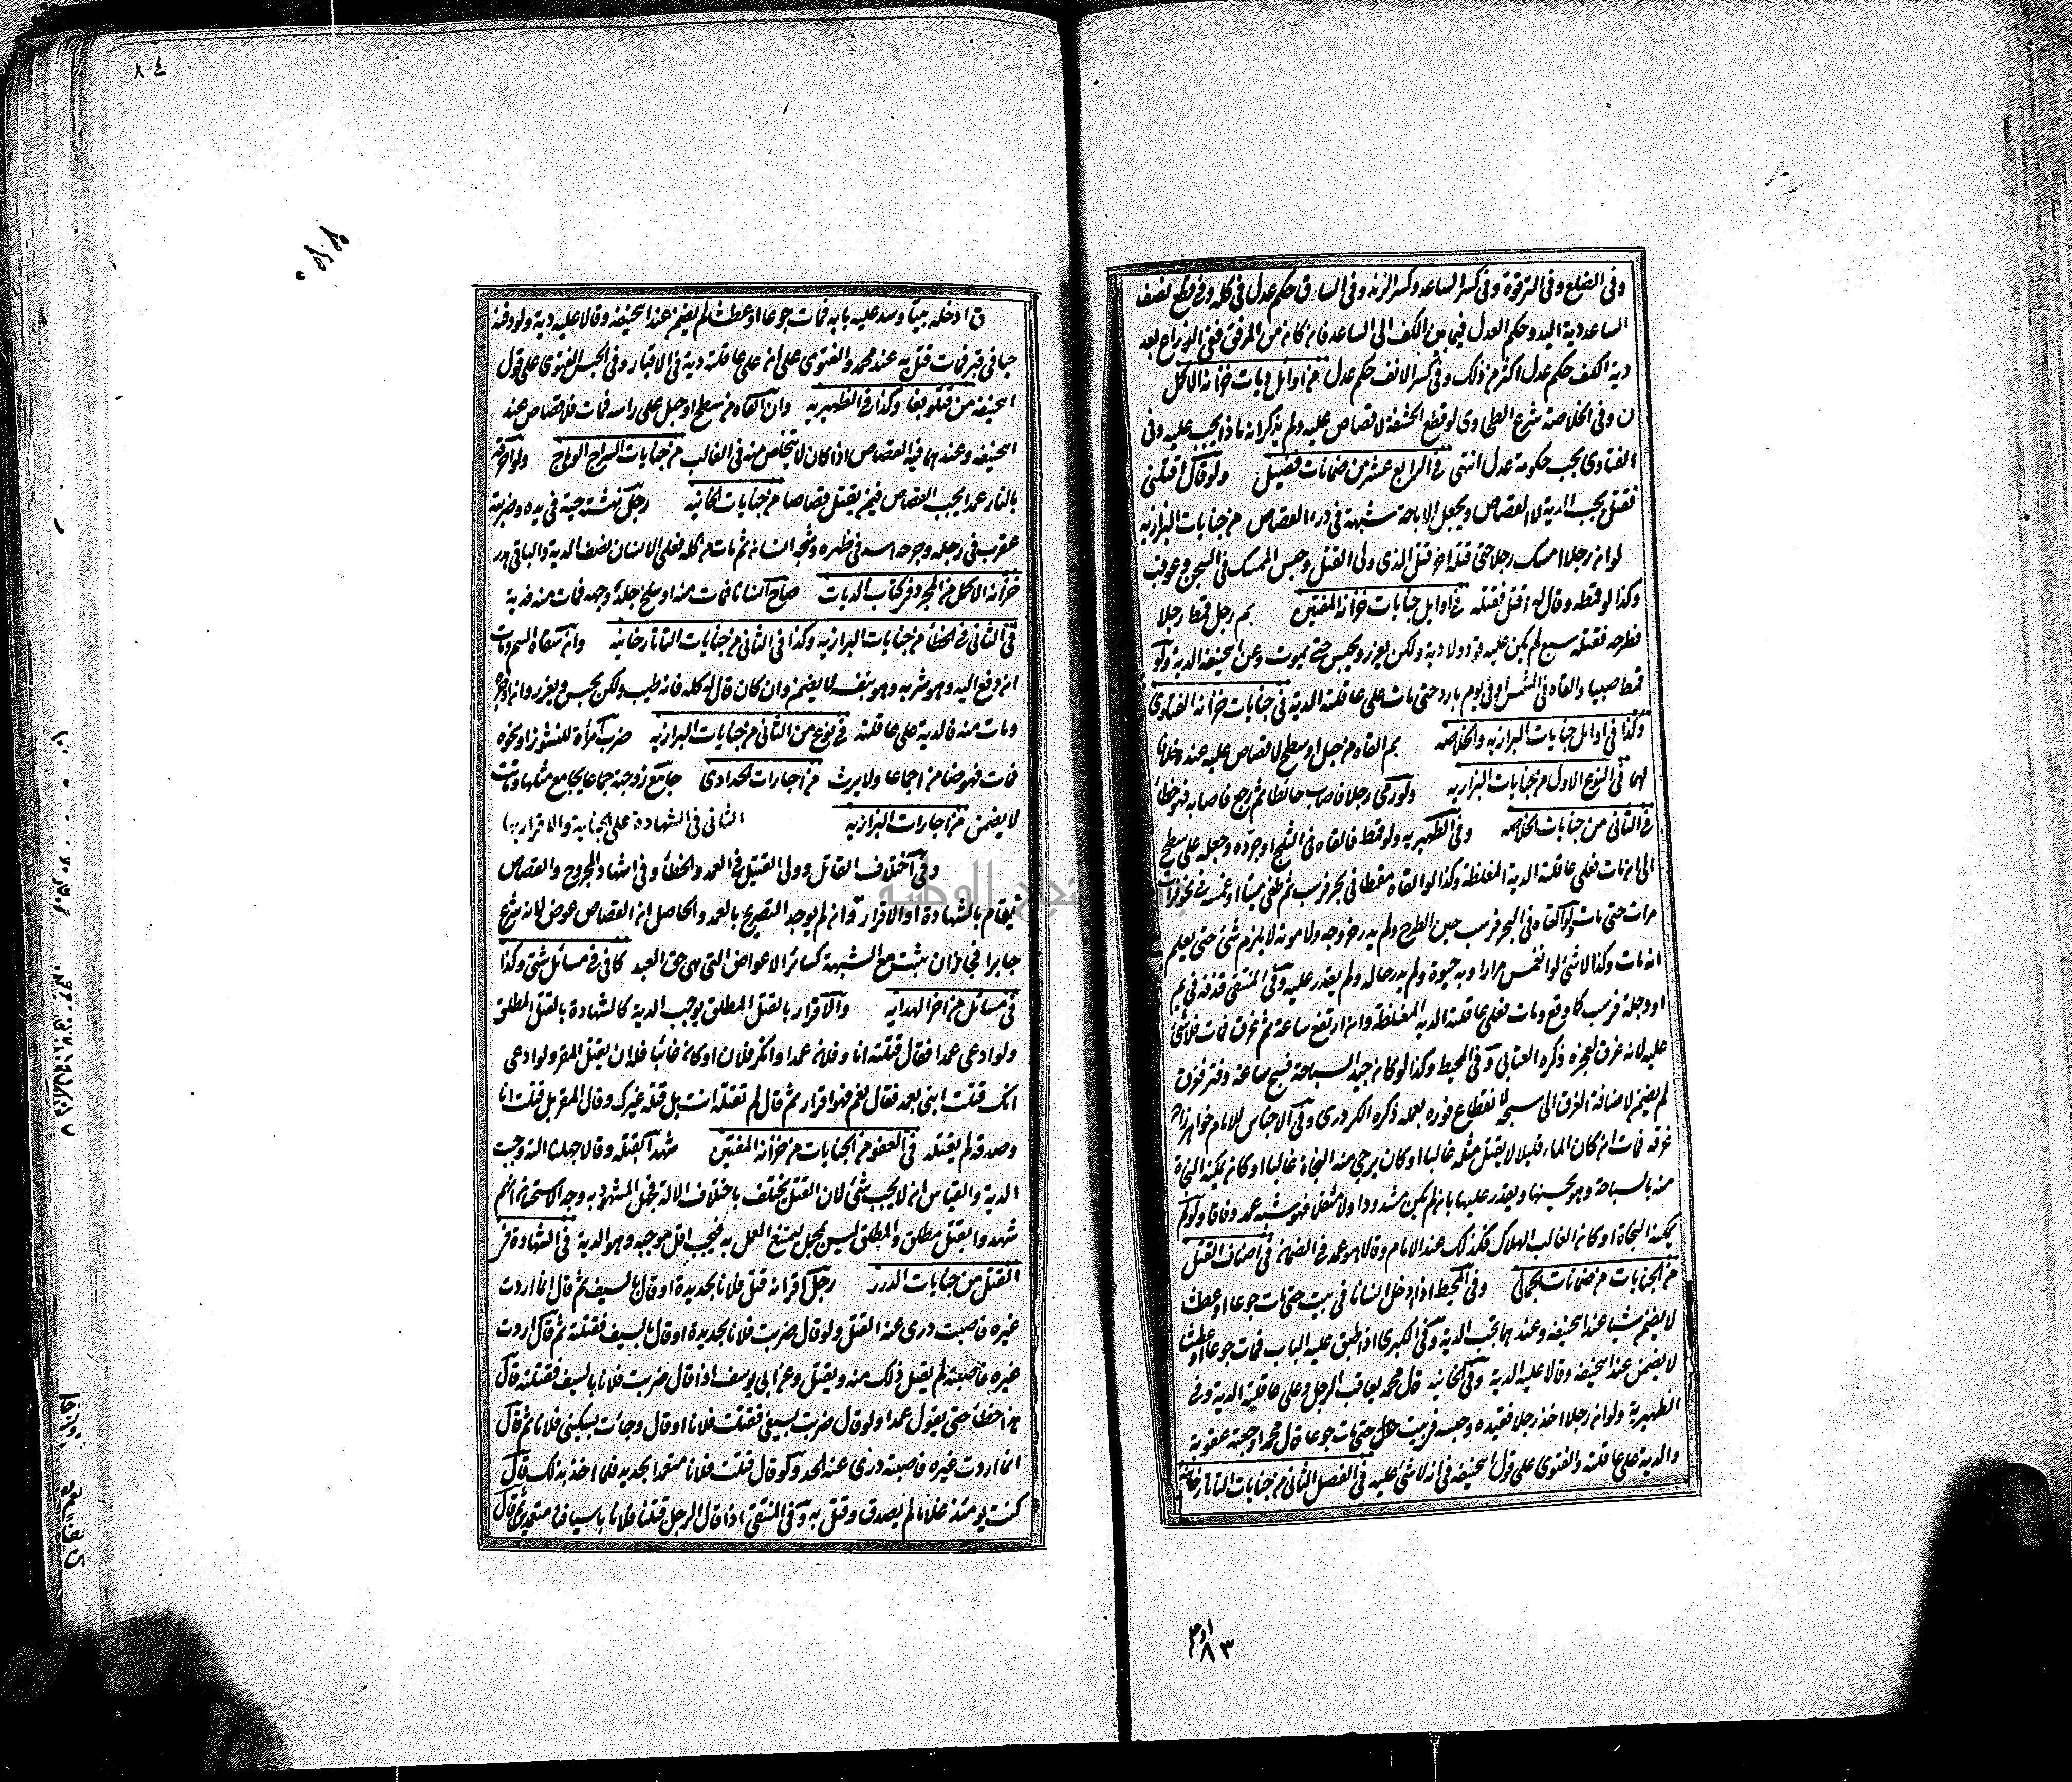 وفى الضلع وفى الترقوة وفى كسر الساعد وكسر الزند وفى الساق حكم عدل فى كله وفى قطع نصف
الساعد دية اليد وحكم العدل فيما بين الكف الى الساعد فان كان من المرفق ففى الذراع بعد
دية الكف حكم عدل اكثر من ذلك وفى كسر الانف حكم عدل من اوائل ديات خزانة الاكمل
ن وفى الخلاصة شرح الطحاوى لو قطع الحشفة لا قصاص عليه ولم يذكر انه ماذا يجب عليه وفى
الفتاوى يجب حكومة عدل انتهى فى الرابع عشر من ضمانات فضيل ولو قال اقتلنى
فقتل يجب الدية لا القصاص ويجعل الاباحة شبهة فى درء القصاص من جنايات البزازيه
لو ان رجلا امسك رجلا حتى قتله اخر قتل الذى ولى القتل وحبس الممسك فى السجن وعوقب
وكذا لو قمطه وقال له اقتل فقتله فى اوايل جنايات خزانة المفتين بم رجل قمط رجلا
فطرحه فقتله سبع لم يكن عليه قود ولا دية ولكن يعزر ويحبس حتى يموت وعن ابيحنيفه الدية ولو
قمط صبيا والقاه فى الشمس او فى يوم بارد حتى مات على عاقلته الدية فى جنايات خزانة الفتاوى
وكذا فى اوائل جنايات البزازيه والخلاصه بم القاه من جبل او سطح لا قصاص عليه عنده خلافا
لهما فى النوع الاول من جنايات البزازيه ولو رمى رجلا فاصاب حائطا ثم رجع فاصابه فهو خطأ
فى الثانى من جنايات الخلاصه وفى الظهيريه ولو قمط فالقاه فى الثلج او جرده وجعله على سطح
الى ان مات فعلى عاقلته الدية المغلظة وكذا لو القاه مقمطا فى بحر فرسب ثم طفى ميتا او غمسه فى نحو فرات
مرات حتى مات ولو القاه فى البحر فرسب حين الطرح ولم يدر خروجه ولا موته لا يلزم شئ حتى يعلم
انه مات وكذا لا شئ لو انغمس مرارا وبه حيوة ولم يدر حاله ولم يقدر عليه وفى المنتقى قذفه فى يم
او دجلة فرسب كما وقع ومات فعلى عاقلته الدية المغلظة وان ارتفع ساعة ثم غرق فمات فلا شئ
عليه لانه غرق لعجزه ذكره العتابى وفى المحيط وكذا لو كان جيد السباحة فسبح ساعة وفتر فغرق
لم يضمن لاضافة الغرق الى سبحه لانقطاع فوره بعمله ذكره الكردرى وفى الاجناس للامام خواهر زاده
غرقه فمات ان كان الماء قليلا لا يقتل مثله غالبا او كان يرجى منه النجاة غالبا او كان يمكنه النجاة
منه بالسباحة وهو يحسنها ويقدر عليها بان لم يكن مشدودا ولا مثقلا فهو شبه عمد وفاقا ولو لم
يمكنه النجاة او كان الغالب الهلاك فكذلك عند الامام وقالا هو عمد فى الضمان فى اصناف القتل
من الجنايات من ضمانات الجمالى وفى المحيط اذا ادخل انسانا فى بيت حتى مات جوعا او عطشا
لا يضمن شيا عند ابيحنيفه وعندهما تجب الدية وفى الكبرى اذا طبق عليه الباب فمات جوعا او عطشا
لا يضمن عند ابيحنيفه وقالا عليه الدية وفى الخانيه قال محمد يعاقب الرجل وعلى عاقلته الدية وفى
الظهيرية ولو ان رجلا اخذ رجلا فقيده وحبسه فى بيت حتى مات جوعا قال محمد اوجعته عقوبة
والدية على عاقلته والفتوى على قول ابيحنيفه فى انه لا شئ عليه فى الفصل الثانى من جنايات التاتارخانيه
٨٣
٨٤
ق ادخله بيتا وسد عليه بابه فمات جوعا او عطشا لم يضمن عند ابيحنيفه وقالا عليه دية ولو دفنه
حيا فى قبر فمات قتل به عند محمد والفتوى على انه على عاقلته دية فى الاقبار وفى الحبس الفتوى على قول
ابيحنيفه من قتلو بغا وكذا فى الظهيريه وان القاه من سطح او جبل على راسه فمات فلا قصاص عند
ابيحنيفه وعندهما فيه القصاص اذا كان لا يتخلص منه فى الغالب من جنايات السراج الوهاج ولو احرقه
بالنار عمدا يجب القصاص فيمن يقتل قصاصا من جنايات الخانيه رجل نهشته حية فى يده وضربته
عقرب فى رجله وجرحه اسد فى ظهره وشجه انسان ثم مات من كله فعلى الانسان نصف الدية والباقى هدر
خزانة الاكمل من المجرد فى كتاب الديات صاح انسانا فمات منه او سلخ جلدة وجهه فمات منه فدية
فى الثانى فى الخطأ من جنايات البزازيه وكذا فى الثانى من جنايات التاتارخانيه وان سقاه السم ومات
ان دفع اليه وهو شربه وهو بنفسه لا يضمن وان كان قال له كله فانه طيب ولكن يحبس ويعزر وان اوجره
ومات منه فالدية على عاقلته فى نوع من الثانى من جنايات البزازيه ضرب امرأة للنشوز او نحوه
فمات فهو ضامن اجماعا ولا يرث من اجارات الحدادى جامع زوجة جماعا يجامع مثلها وماتت
لا يضمن من اجارات البزازيه الثانى فى الشهادة على الجناية والاقرار بها
وفى اختلاف القاتل وولى القتيل فى العمد والخطأ وفى اشهاد المجروح والقصاص
يقام بالشهادة او الاقرار وان لم يوجد التصريح بالعمد والحاصل ان القصاص عوض لانه شرع
جابرا فجاز ان يثبت مع الشبهة كسائر الاعواض التى هى حق العبد كافى فى مسائل شتى وكذا
فى مسائل من اخر الهدايه والاقرار بالقتل المطلق يوجب الدية كالشهادة بالقتل المطلق
ولو ادعى عمدا فقال قتلته انا وفلان عمدا وانكر فلان او كان غائبا فله ان يقتل المقر ولو ادعى
انك قتلت ابنى بعمد فقال نعم فهو اقرار ثم قال لم تقتله انت بل قتله غيرك وقال المقر بل قتلت انا
وصدقه لم يقتله فى العفو من الجنايات من خزانة المفتين شهدا بقتله وقالا جهلنا الته وجبت
الدية والقياس ان لا يجب شئ لان القتل يختلف باختلاف الالة فجهل المشهود به وجه الاستحسان انهم
شهدوا بقتل مطلق والمطلق ليس بمجمل ليمتنع العمل به فيجب اقل موجبه وهو الدية فى الشهادة فى
القتل من جنايات الدرر رجل اقر انه قتل فلانا بحديدة او قال بالسيف ثم قال انما اردت
غيره فاصبت درئ عنه القتل ولو قال ضربت فلانا بحديدة او قال بالسيف فقتلته ثم قال اردت
غيره فاصبته لم يقبل ذلك منه ويقتل وعن ابى يوسف اذا قال ضربت فلانا بالسيف فقتلته قال
هذا خطأ حتى يقول عمدا ولو قال ضربت بسيفى فقتلت فلانا او قال وجأت بسكينى فلانا ثم قال
انما اردت غيره فاصبته درئ عنه الحد ولو قال قتلت فلانا متعمدا بحديد فلما اخذ بذلك قال
كنت يومئذ غلاما لم يصدق وقتل به وفى المنتقى اذا قال الرجل قتلنا فلانا باسيافنا متعمدين ثم قال